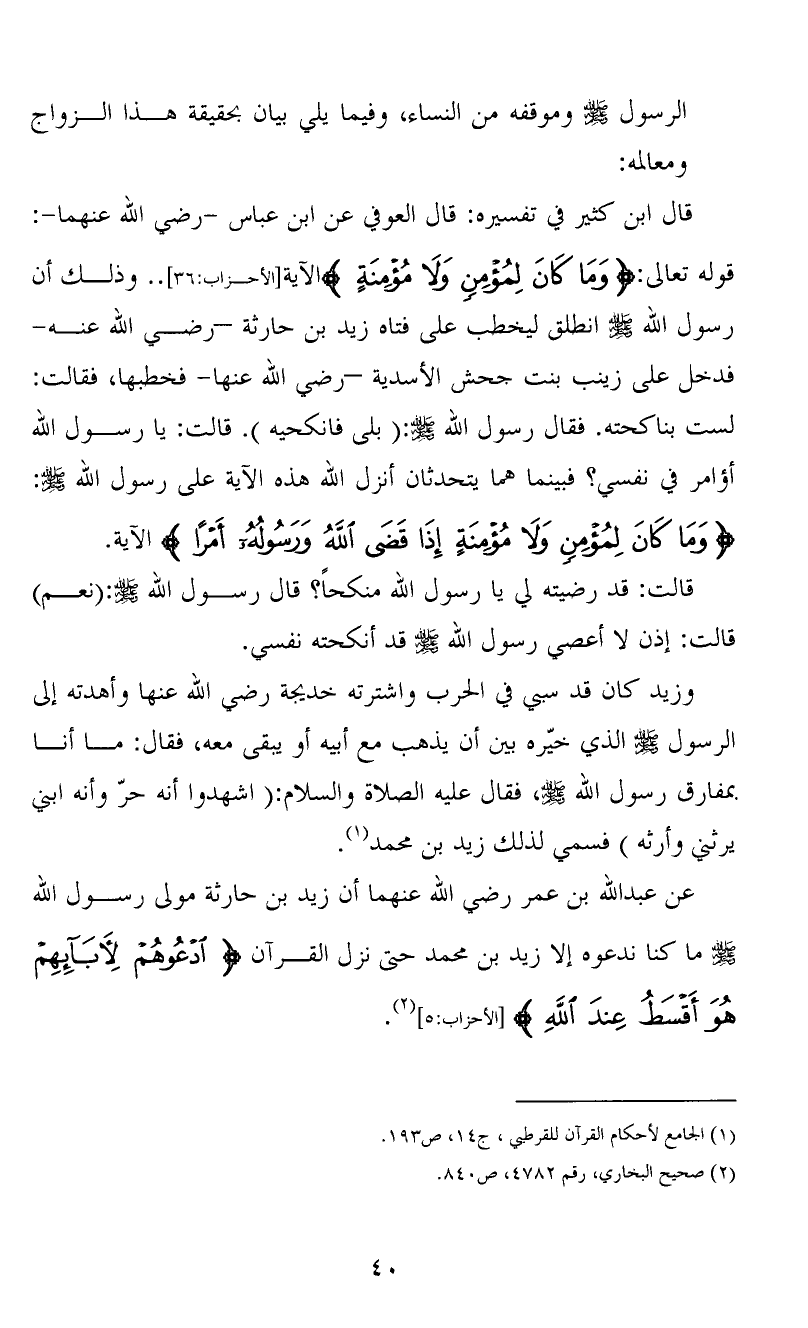 الرسول ﷺ وموقفه من النساء، وفيما يلي بيان بحقيقة هـــذا الـــزواج
ومعالمه:
قال ابن كثير في تفسيره: قال العوفي عن ابن عباس –رضي الله عنهما–:
قوله تعالى:﴿ وَمَا كَانَ لِمُؤْمِنٍ وَلَا مُؤْمِنَةٍ ﴾الآية[الأحـزاب:٣٦].. وذلــك أن
رسول الله ﷺ انطلق ليخطب على فتاه زيد بن حارثة –رضــي الله عنــه–
فدخل على زينب بنت جحش الأسدية –رضي الله عنها– فخطبها، فقالت:
لست بناكحته. فقال رسول الله ﷺ:( بلى فانكحيه ). قالت: يا رســول الله
أؤامر في نفسي؟ فبينما هما يتحدثان أنزل الله هذه الآية على رسول الله ﷺ:
﴿ وَمَا كَانَ لِمُؤْمِنٍ وَلَا مُؤْمِنَةٍ إِذَا قَضَى ٱللَّهُ وَرَسُولُهُۥٓ أَمْرًا ﴾ الآية.
قالت: قد رضيته لي يا رسول الله منكحاً؟ قال رســول الله ﷺ:(نعــم)
قالت: إذن لا أعصي رسول الله ﷺ قد أنكحته نفسي.
وزيد كان قد سبي في الحرب واشترته خديجة رضي الله عنها وأهدته إلى
الرسول ﷺ الذي خيّره بين أن يذهب مع أبيه أو يبقى معه، فقال: مــا أنــا
بمفارق رسول الله ﷺ، فقال عليه الصلاة والسلام:( اشهدوا أنه حرّ وأنه ابني
يرثني وأرثه ) فسمي لذلك زيد بن محمد(١).
عن عبدالله بن عمر رضي الله عنهما أن زيد بن حارثة مولى رســول الله
ﷺ ما كنا ندعوه إلا زيد بن محمد حتى نزل القــرآن ﴿ ٱدْعُوهُمْ لِأٓبَآئِهِمْ
هُوَ أَقْسَطُ عِندَ ٱللَّهِ ﴾ [الأحزاب:٥](٢).
(١) الجامع لأحكام القرآن للقرطبي ، ج١٤، ص١٩٣.
(٢) صحيح البخاري، رقم ٤٧٨٢، ص٨٤٠.
٤٠